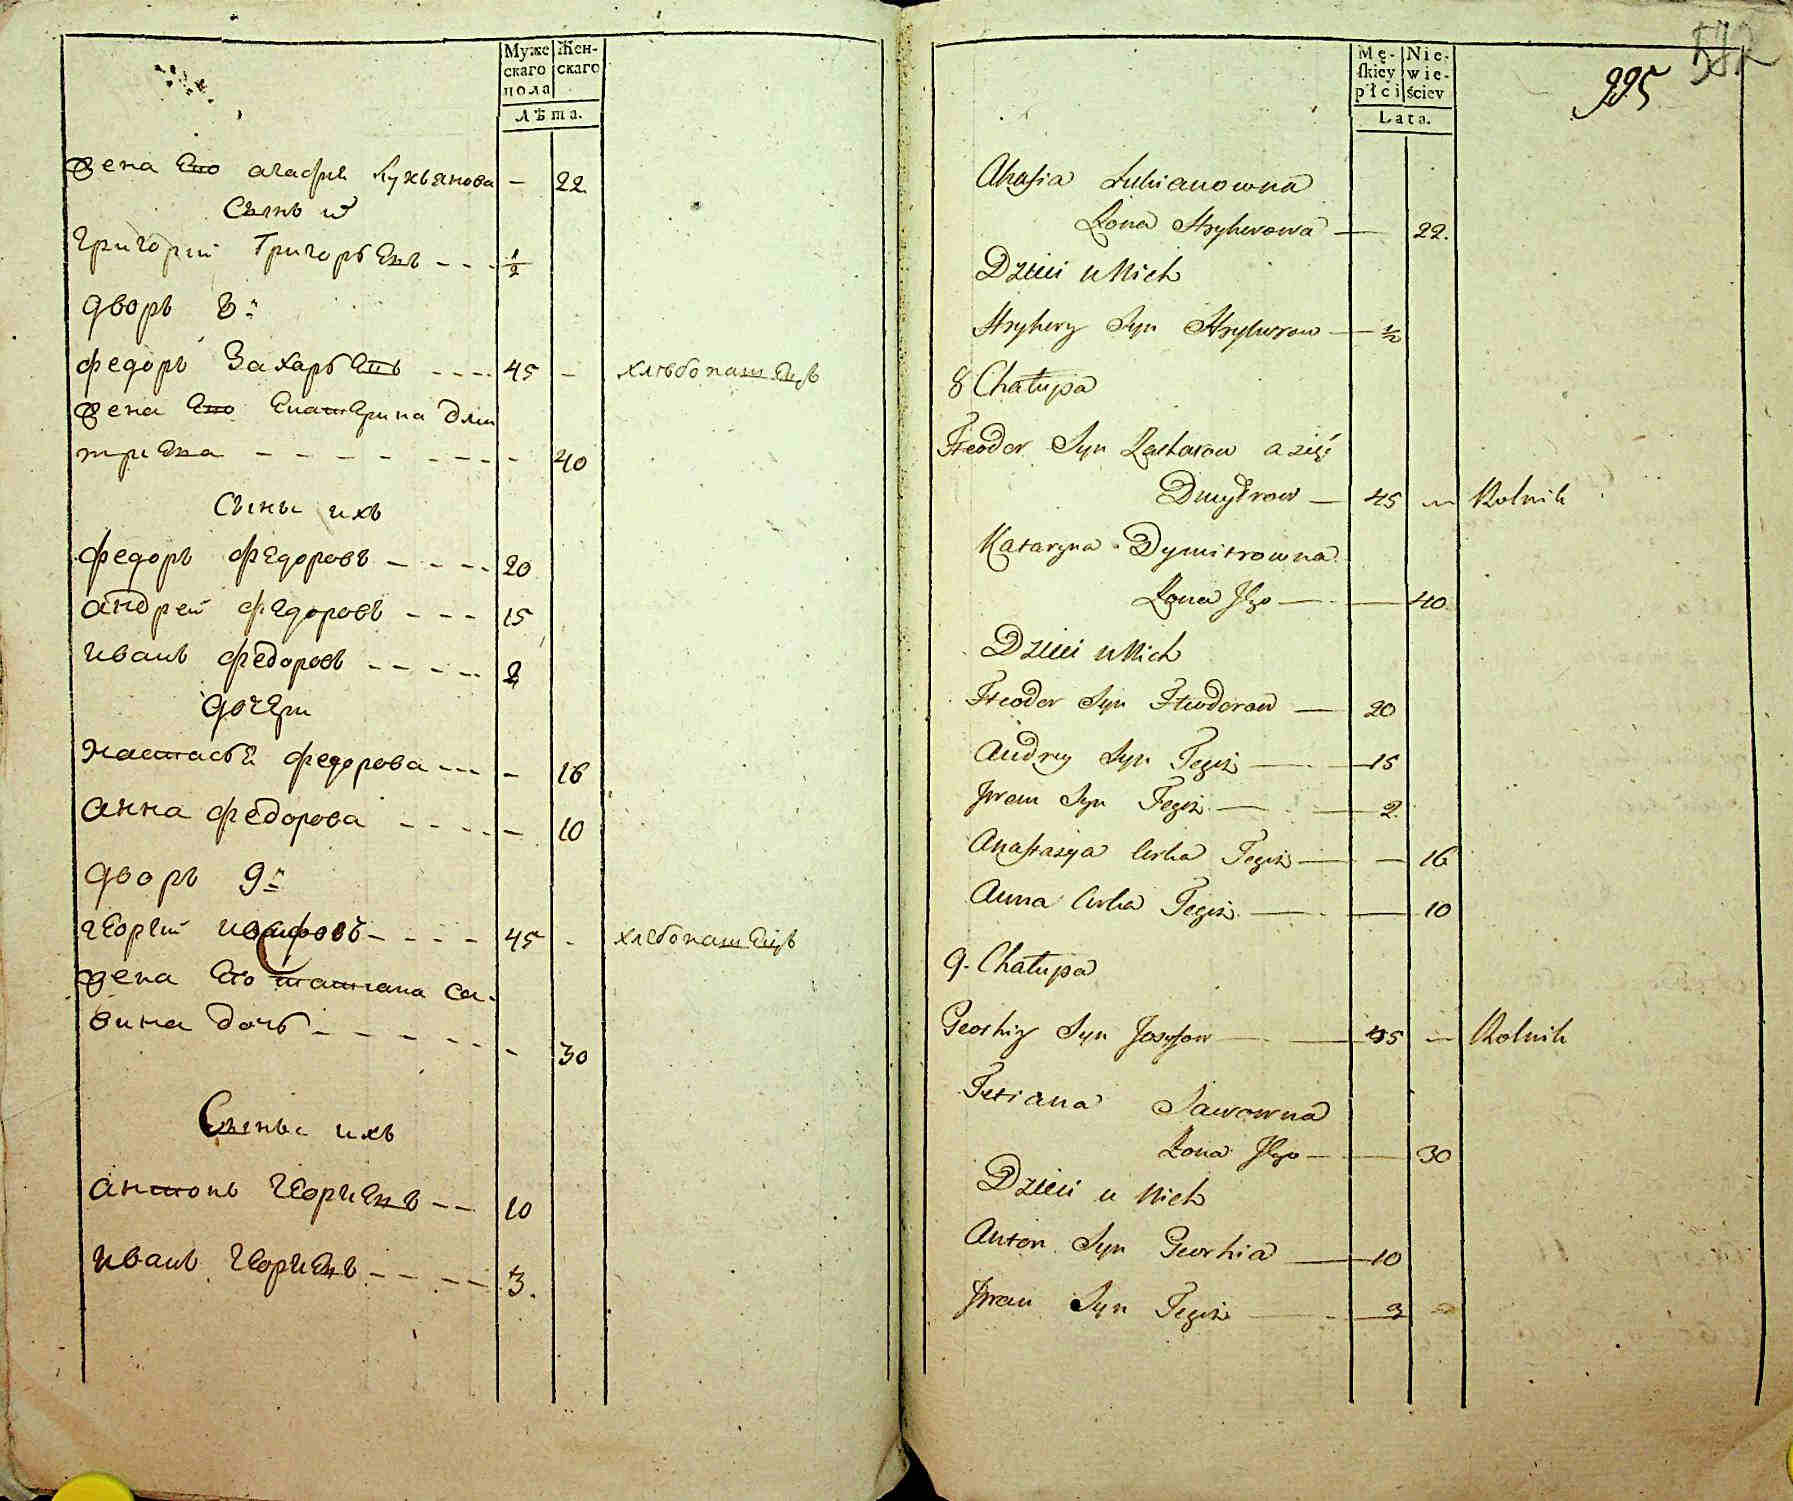 Муже
скаго
пола
Жен-
скаго
Лѣта.
жена Его агафия Лукьянова - 22
Сынъ их
григорий Григорьевъ - - - 1/2
дворъ 8й
федоръ Захарьевъ - - - - 45 - хлѣбопашецъ
жена Его Екатерина дми
триева - - - - - - - - 40
Сыны ихъ
федоръ федоровъ - - - - 20
андрей федоровъ - - - 15
иванъ федоровъ - - - - - 2
дочери
настасья федорова - - - - 16
анна федорова - - - - - 10
дворъ 9й
георгий иосифовъ - - - - 45 - хлѣбопашецъ
жена Его татиана са-
вина дочь - - - - - - 30
Сыны ихъ
антонъ георгиевъ - - 10
иванъ георгиевъ - - - - - 3.
Mę-
skiey
płci
Nie-
wie-
ściey
Lata.
572
995
Ahafia Lukianowna
Żona Hryhorowa — 22.
Dzieci u Nich
Hryhory Syn Hryhorow — 1/2
8 Chałupa
Fteodor Syn Zacharow a zięć
Dmytrow — 45 — Rolnik
Kataryna Dymitrowna
Żona Jego — — 40
Dzieci u Nich
Fteodor Syn Fteodorow — 20
Andrey Syn Tegoż — — 15
Jwan Syn Tegoż — — 2.
Anastazya Córka Tegoż — — 16
Anna Córka Tegoż — — 10
9. Chałupa
Georhiy Syn Jozefow — — 45 — Rolnik
Tetiana Sawowna
Żona Jego — — 30
Dzieci u Nich
Anton Syn Georhia — 10
Jwan Syn Tegoż — — 3